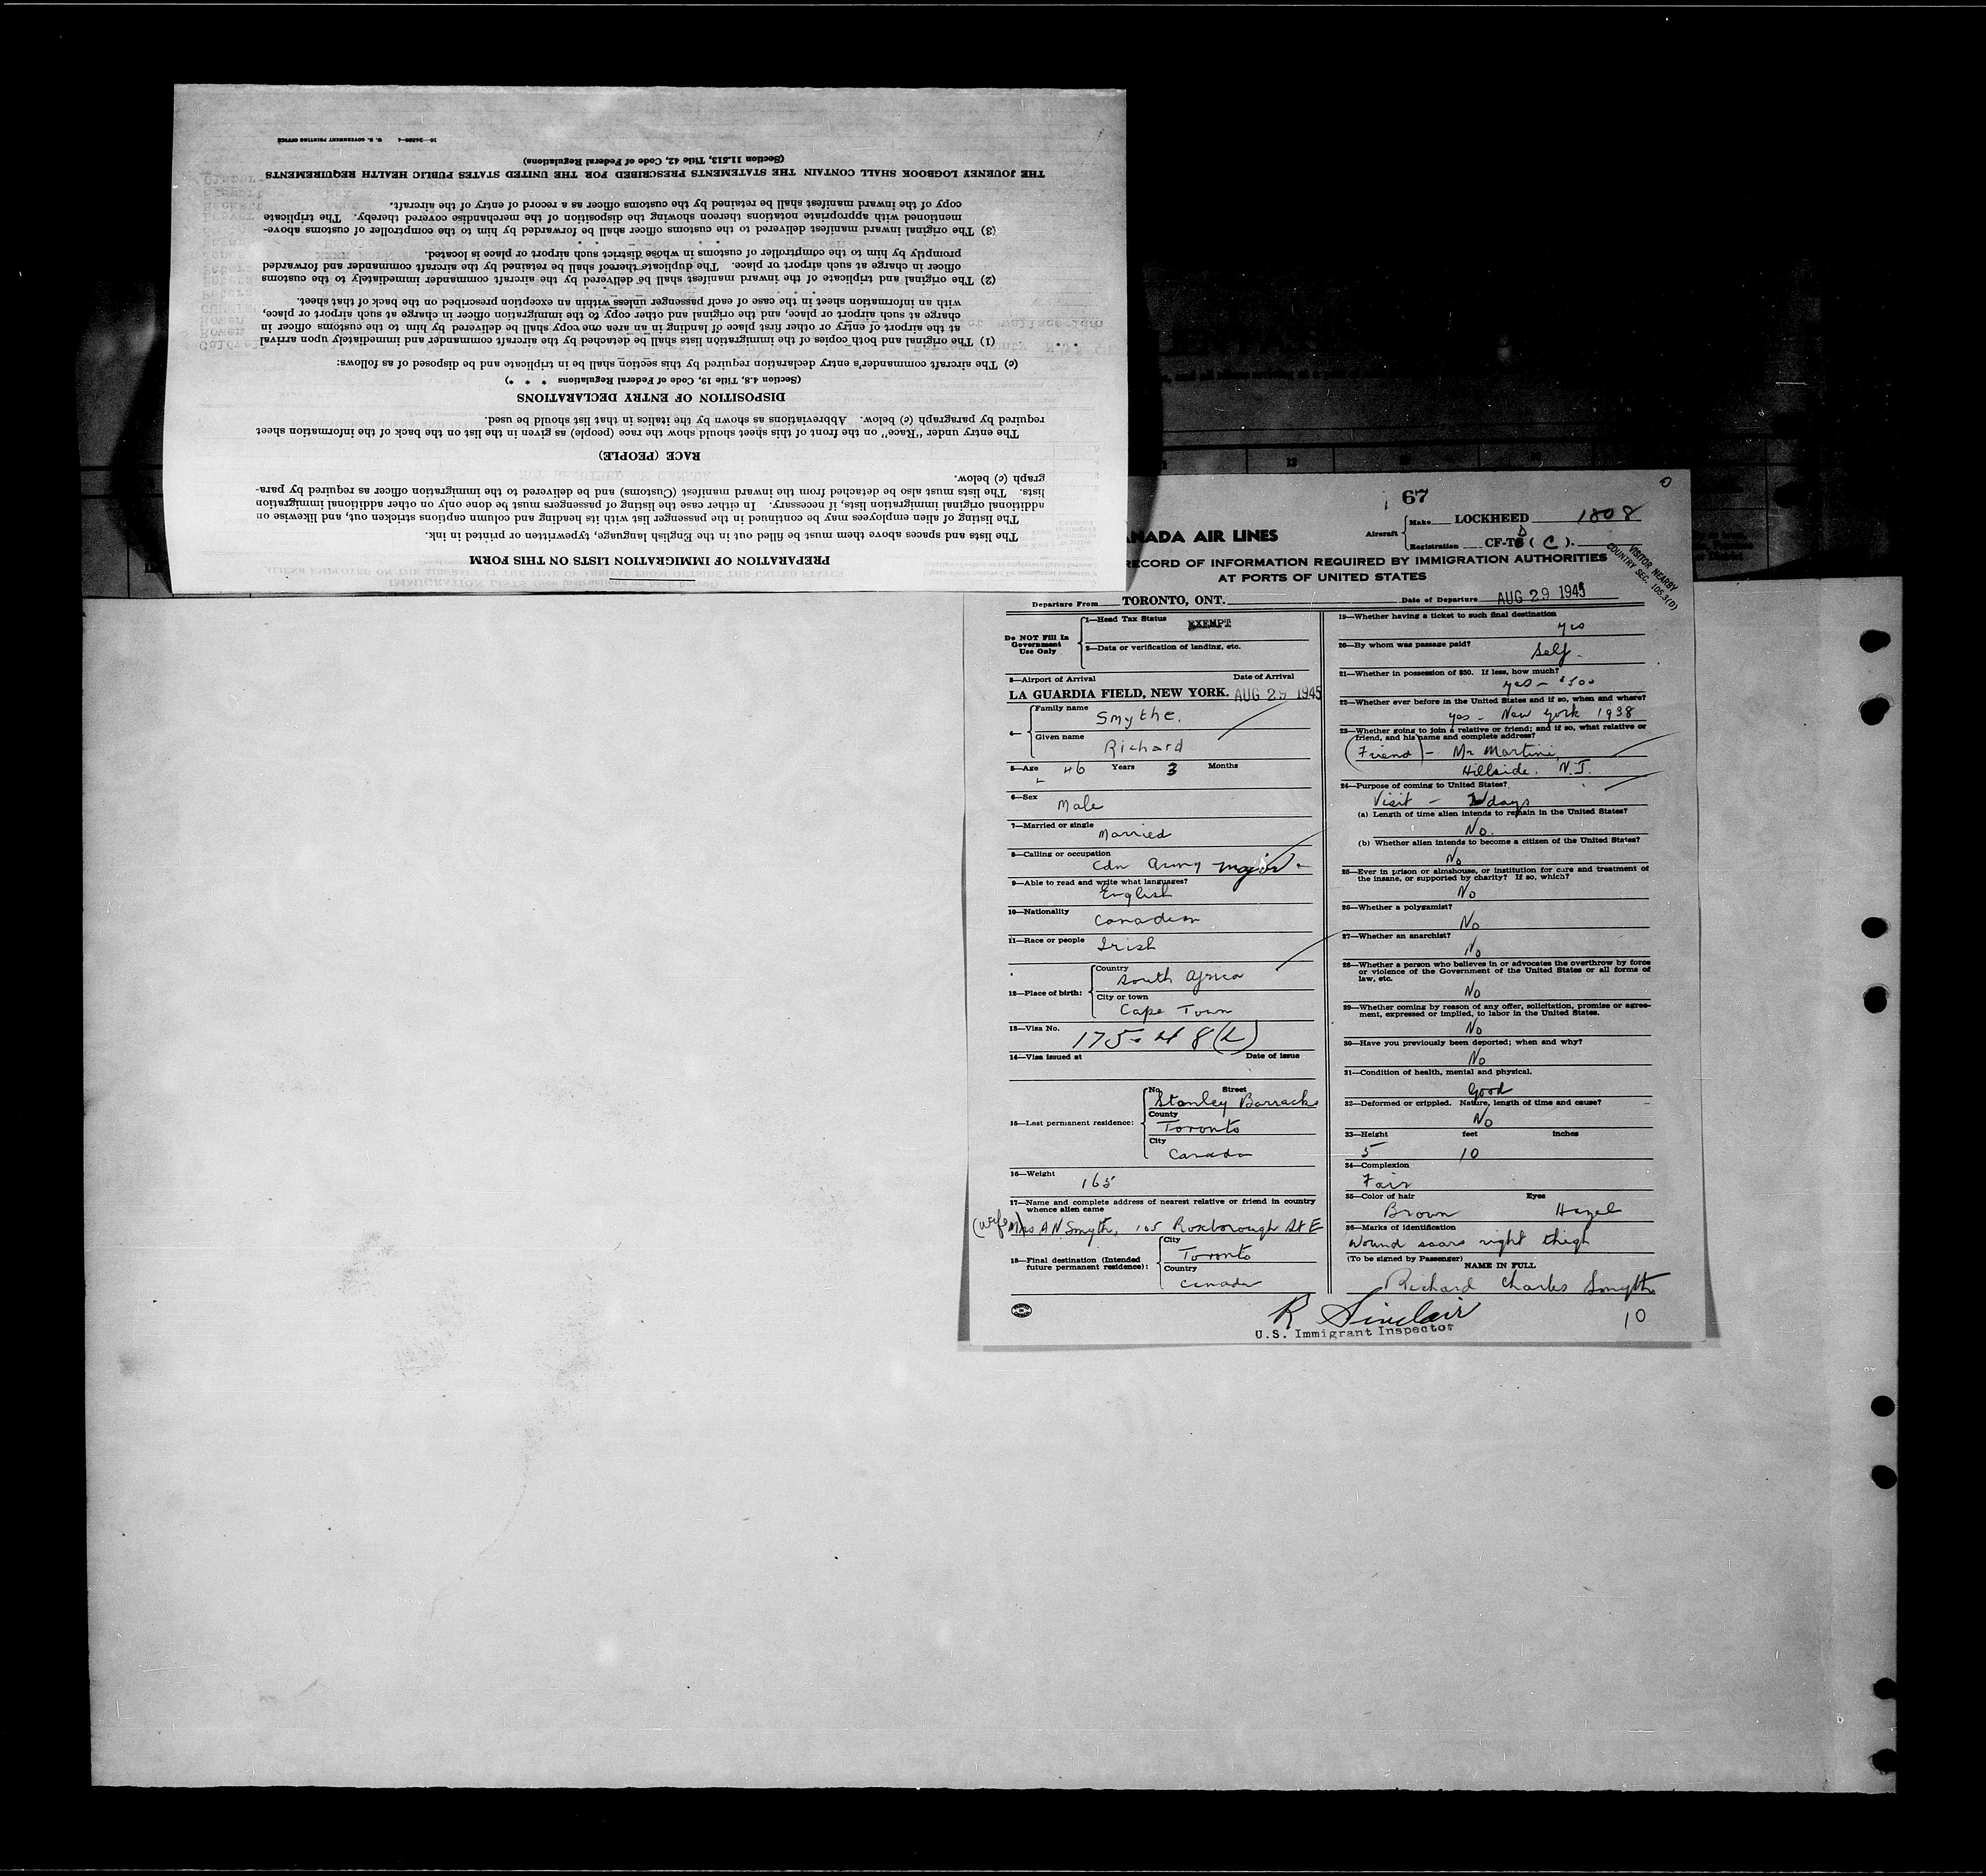 PREPARATION OF IMMIGRATION LISTS ON THIS FORM
The lists and spaces above them must be filled out in the English language, typewritten or printed in ink.
The listing of alien employees may be continued in the passenger list with its heading and column captions stricken out, and likewise on
additional original immigration lists, if necessary. In either case the listing of passengers must be done only on other additional immigration
lists. The lists must also be detached from the inward manifest (Customs) and be delivered to the immigration officer as required by para-
graph (c) below.
RACE (PEOPLE)
The entry under "Race" on the front of this sheet should show the race (people) as given in the list on the back of the information sheet
required by paragraph (c) below. Abbreviations as shown by the italics in that list should be used.
DISPOSITION OF ENTRY DECLARATIONS
(Section 4.8, Title 19, Code of Federal Regulations * * *)
(c) The aircraft commander's entry declaration required by this section shall be in triplicate and be disposed of as follows:
(1) The original and both copies of the immigration lists shall be detached by the aircraft commander and immediately upon arrival
at the airport of entry or other first place of landing in an area one copy shall be delivered by him to the customs officer in
charge at such airport or place, and the original and other copy to the immigration officer in charge at such airport or place,
with an information sheet in the case of each passenger unless within an exception prescribed on the back of that sheet.
(2) The original and triplicate of the inward manifest shall be delivered by the aircraft commander immediately to the customs
officer in charge at such airport or place. The duplicate thereof shall be retained by the aircraft commander and forwarded
promptly by him to the comptroller of customs in whose district such airport or place is located.
(3) The original inward manifest delivered to the customs officer shall be forwarded by him to the comptroller of customs above-
mentioned with appropriate notations thereon showing the disposition of the merchandise covered thereby. The triplicate
copy of the inward manifest shall be retained by the customs officer as a record of entry of the aircraft.
THE JOURNEY LOGBOOK SHALL CONTAIN THE STATEMENTS PRESCRIBED FOR THE UNITED STATES PUBLIC HEALTH REQUIREMENTS
(Section 11.513, Title 42, Code of Federal Regulations)
U. S. GOVERNMENT PRINTING OFFICE
67
Aircraft Make LOCKHEED 1808
Registration CF-T ( C ).
ANADA AIR LINES
RECORD OF INFORMATION REQUIRED BY IMMIGRATION AUTHORITIES
AT PORTS OF UNITED STATES
VISITOR NEARBY
COUNTRY SEC. 105.3(D)
Departure From TORONTO, ONT. Date of Departure AUG 29 1945
Do NOT Fill In
Government
Use Only
1—Head Tax Status EXEMPT
2—Data or verification of landing, etc.
3—Airport of Arrival Date of Arrival
LA GUARDIA FIELD, NEW YORK. AUG 29 1945
4— Family name Smythe.
Given name Richard
5—Age 46 Years 3 Months
6—Sex Male
7—Married or single Married
8—Calling or occupation Cdn Army major
9—Able to read and write what languages? English
10—Nationality Canadian
11—Race or people Irish
12—Place of birth: Country South Africa
City or town Cape Town
13—Visa No. 175.
14—Visa issued at Date of issue
15—Last permanent residence: No. Street Stanley Barracks
County Toronto
City Canada
16—Weight 165
17—Name and complete address of nearest relative or friend in country
whence alien came
(wife) Mrs A N Smyth, 105 Roxborough St E
18—Final destination (Intended
future permanent residence): City Toronto
Country Canada
19—Whether having a ticket to such final destination
yes
20—By whom was passage paid?
Self.
21—Whether in possession of $50. If less, how much?
yes —
22—Whether ever before in the United States and if so, when and where?
yes – New York 1938
23—Whether going to join a relative or friend; and if so, what relative or
friend, and his name and complete address?
(Friend) – Mr Martini,
Hillside. N.J.
24—Purpose of coming to United States?
Visit — days
(a) Length of time alien intends to remain in the United States?
No.
(b) Whether alien intends to become a citizen of the United States?
No
25—Ever in prison or almshouse, or institution for care and treatment of
the insane, or supported by charity? If so, which?
No
26—Whether a polygamist?
No
27—Whether an anarchist?
No
28—Whether a person who believes in or advocates the overthrow by force
or violence of the Government of the United States or all forms of
law, etc.
No
29—Whether coming by reason of any offer, solicitation, promise or agree-
ment, expressed or implied, to labor in the United States.
No
30—Have you previously been deported; when and why?
No
31—Condition of health, mental and physical.
Good
32—Deformed or crippled. Nature, length of time and cause?
No
33—Height feet inches
5 10
34—Complexion
Fair
35—Color of hair Eyes
Brown Hazel
36—Marks of identification
Wound scars right thigh
(To be signed by Passenger)
NAME IN FULL
Richard Charles Smythe
10
R Sinclair
U.S. Immigrant Inspector